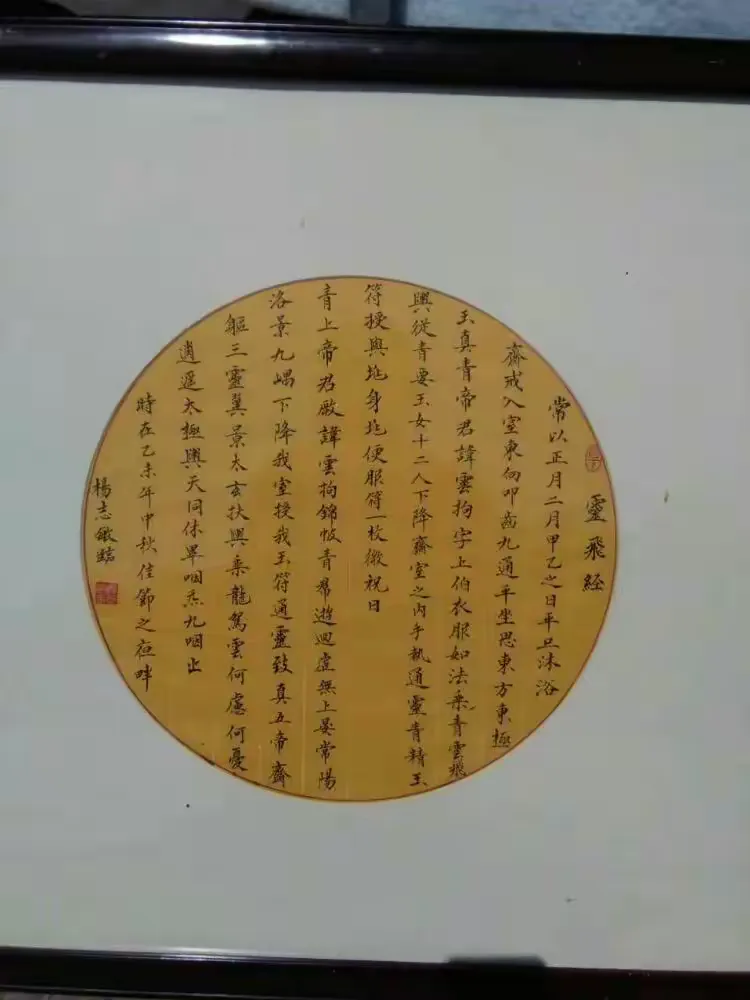 靈飛經
常以正月二月甲乙之日平旦沐浴
齋戒入室東向叩齒九通平坐思東方東極
玉真青帝君諱雲拘字上伯衣服如法乘青雲飛
輿從青要玉女十二人下降齋室之內手執通靈青精玉
符授與兆身兆便服符一枚微祝曰
青上帝君厥諱雲拘錦帔青帬遊迴虛無上晏常陽
洛景九嵎下降我室授我玉符通靈致真五帝齋
軀三靈翼景太玄扶輿乘龍駕雲何慮何憂
逍遙太極與天同休畢咽炁九咽止
時在乙未年中秋佳節之夜畔
楊志